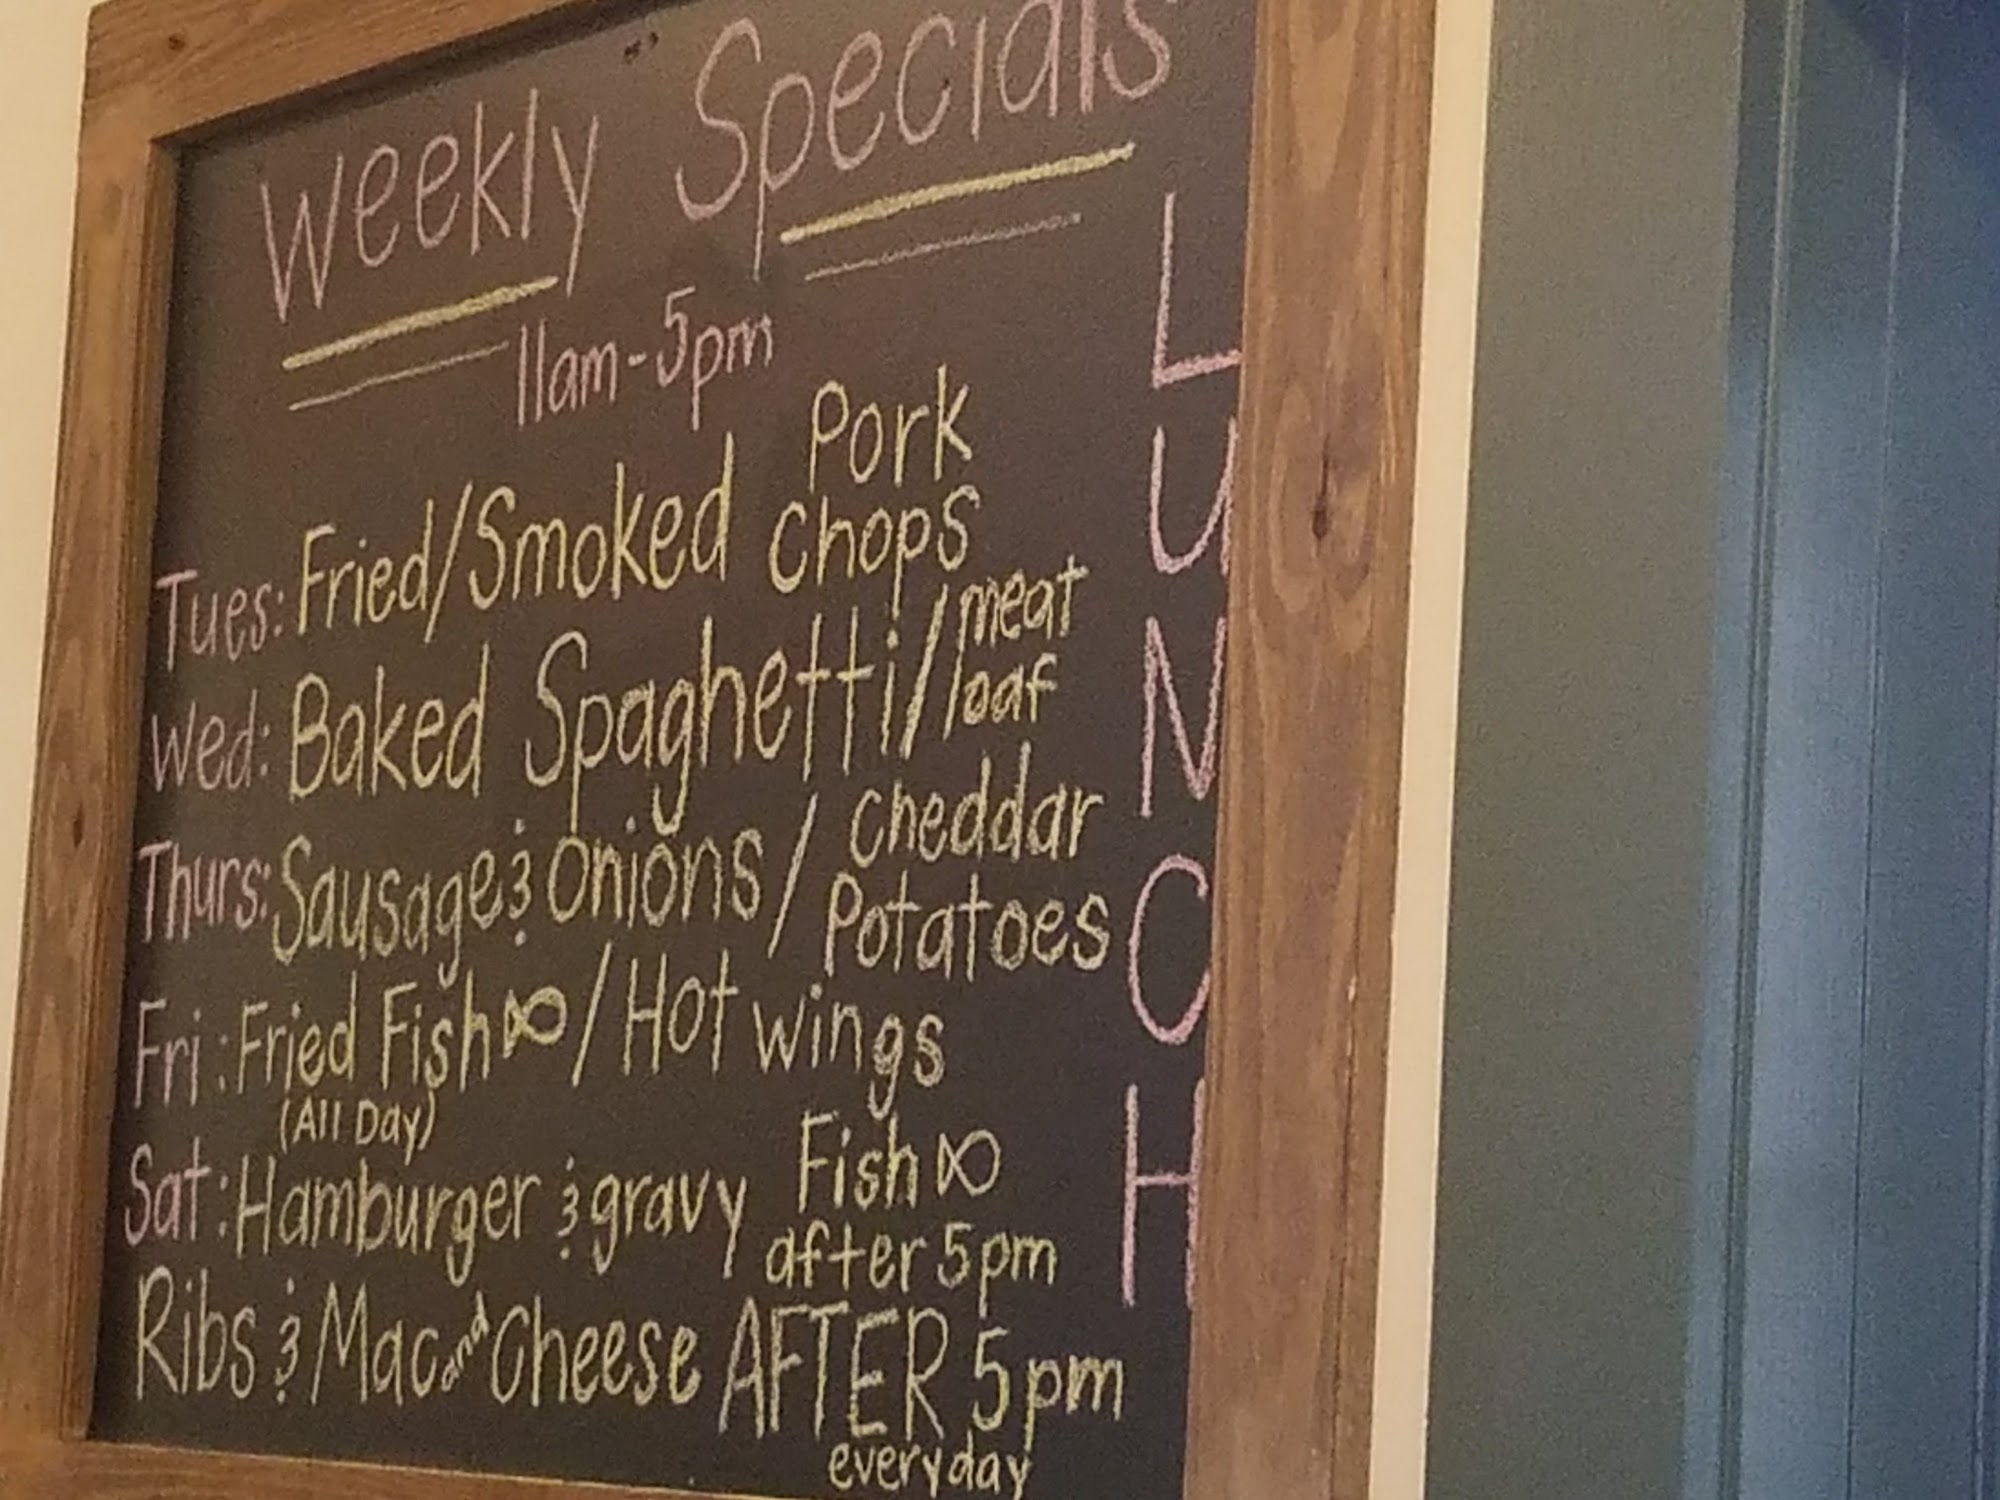 Weekly Specials
11am-5pm
Tues: Fried/Smoked Pork Chops
Wed: Baked Spaghetti/meat loaf
Thurs: Sausage & Onions/cheddar Potatoes
Fri: Fried Fish/Hot wings
(All Day)
Sat: Hamburger & gravy Fish after 5pm
Ribs & Mac and Cheese AFTER 5pm
everyday
LUNCH